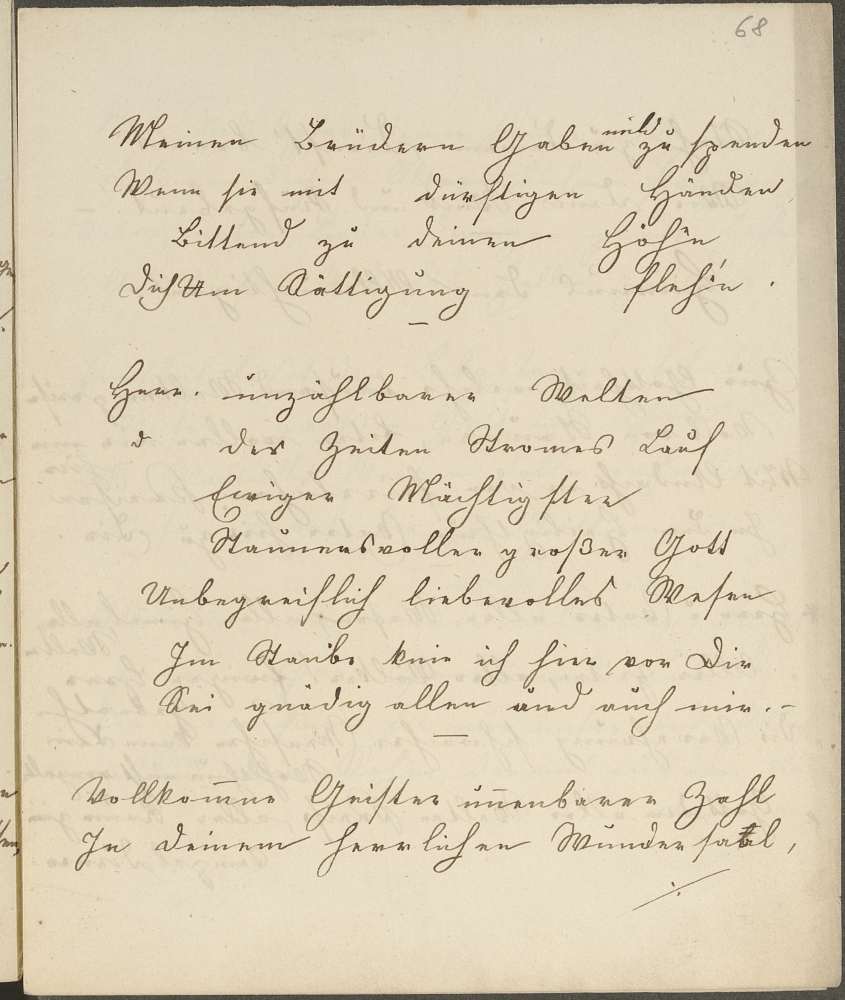 68
Meinen Brüdern Gaben mild zu spenden
Wenn sie mit dürftigen Händen
Bittend zu deinen Höh'n
Dich Um Sättigung fleh'n.
Herr. unzählbarer Welten
d der Zeiten Stromes Lauf
Ewiger Mächtigster
Staunensvoller großer Gott
Unbegreiflich liebevolles Wesen
Im Staube knie ich hier vor Dir
Sei gnädig allen und auch mir. –
Vollkom̄ne Geister un̄enbarer Zahl
In Deinem herrlichen Wundersaal,